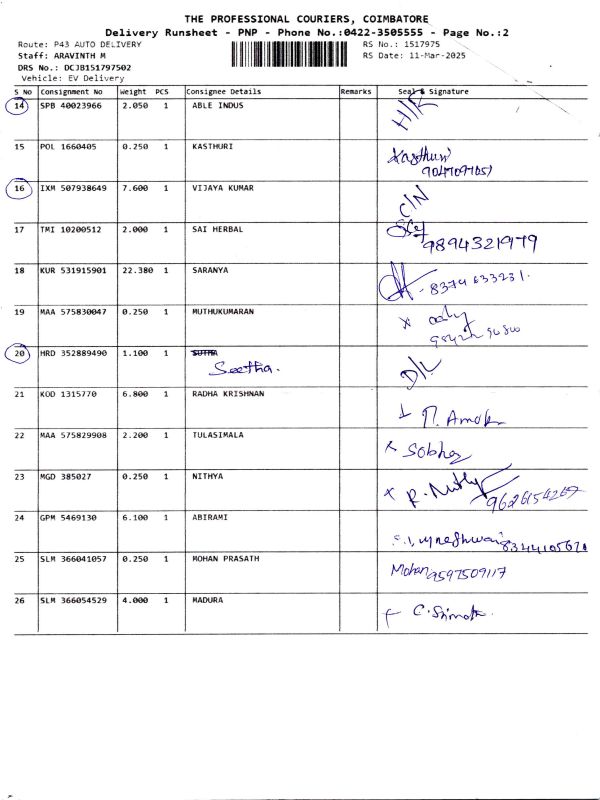 THE PROFESSIONAL COURIERS, COIMBATORE
Delivery Runsheet - PNP - Phone No.:0422-3505555 - Page No.:2
Route: P43 AUTO DELIVERY RS No.: 1517975
Staff: ARAVINTH M RS Date: 11-Mar-2025
DRS No.: DCJB151797502
Vehicle: EV Delivery
S No Consignment No Weight PCS Consignee Details Remarks Seal & Signature
14 SPB 40023966 2.050 1 ABLE INDUS H/K
15 POL 1660405 0.250 1 KASTHURI Kasthuri
16 IXM 507938649 7.600 1 VIJAYA KUMAR C/N
17 TMI 10200512 2.000 1 SAI HERBAL
9894321979
18 KUR 531915901 22.380 1 SARANYA 8374633231.
19 MAA 575830047 0.250 1 MUTHUKUMARAN x
20 HRD 352889490 1.100 1 SUTHA D/L
Seetha.
21 KOD 1315770 6.800 1 RADHA KRISHNAN
22 MAA 575829908 2.200 1 TULASIMALA x Sobhas
23 MGD 385027 0.250 1 NITHYA x R. Nithy
9626154267
24 GPM 5469130 6.100 1 ABIRAMI
25 SLM 366041057 0.250 1 MOHAN PRASATH Mohan 9597509117
26 SLM 366054529 4.000 1 MADURA